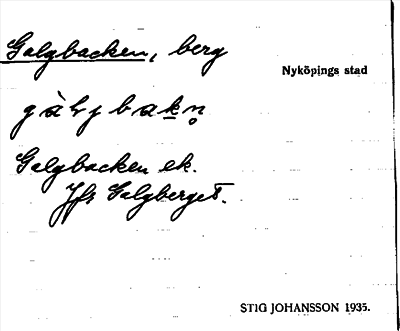 Galgbacken, berg
Nyköpings stad
Galgbacken ek.
Jfr Galgberget.
STIG JOHANSSON 1935.